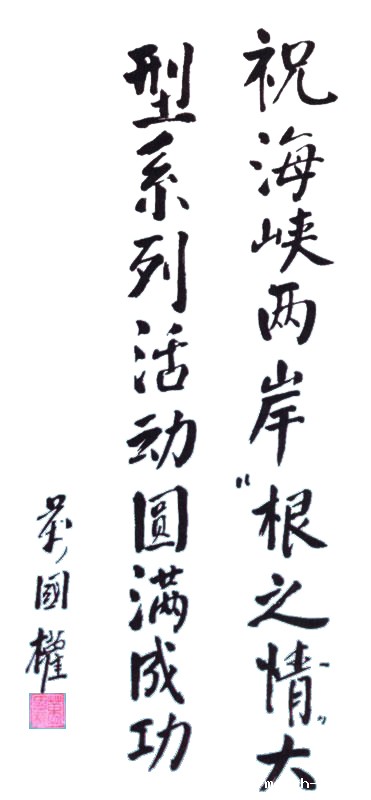 祝海峡两岸“根之情”大
型系列活动圆满成功
万國權